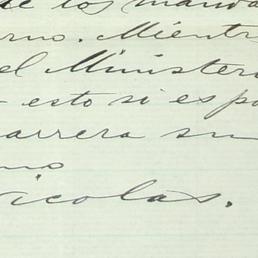 te los manda
rno. Mientr
el Ministeri
esto si es po
arrera su
mo
icolas.